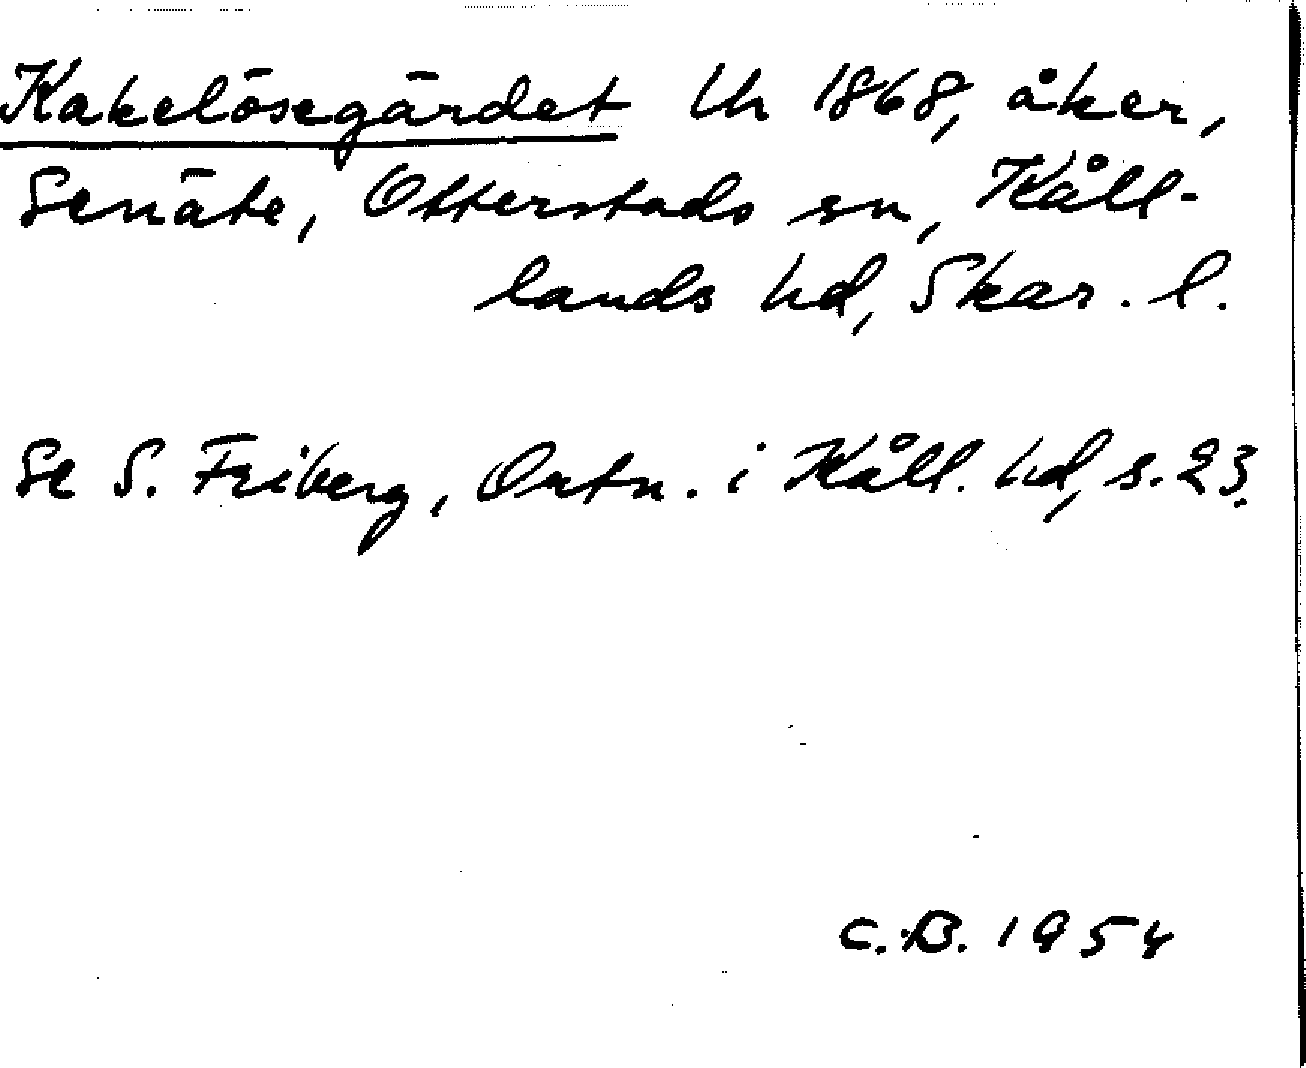 Kakelösegärdet Uh 1868, åker,
Senäte, Otterstads sn, Kåll-
lands hd, Skar. l.
Se S. Friberg, Ortn. i Kåll. hd, s. 23.
C. B. 1954